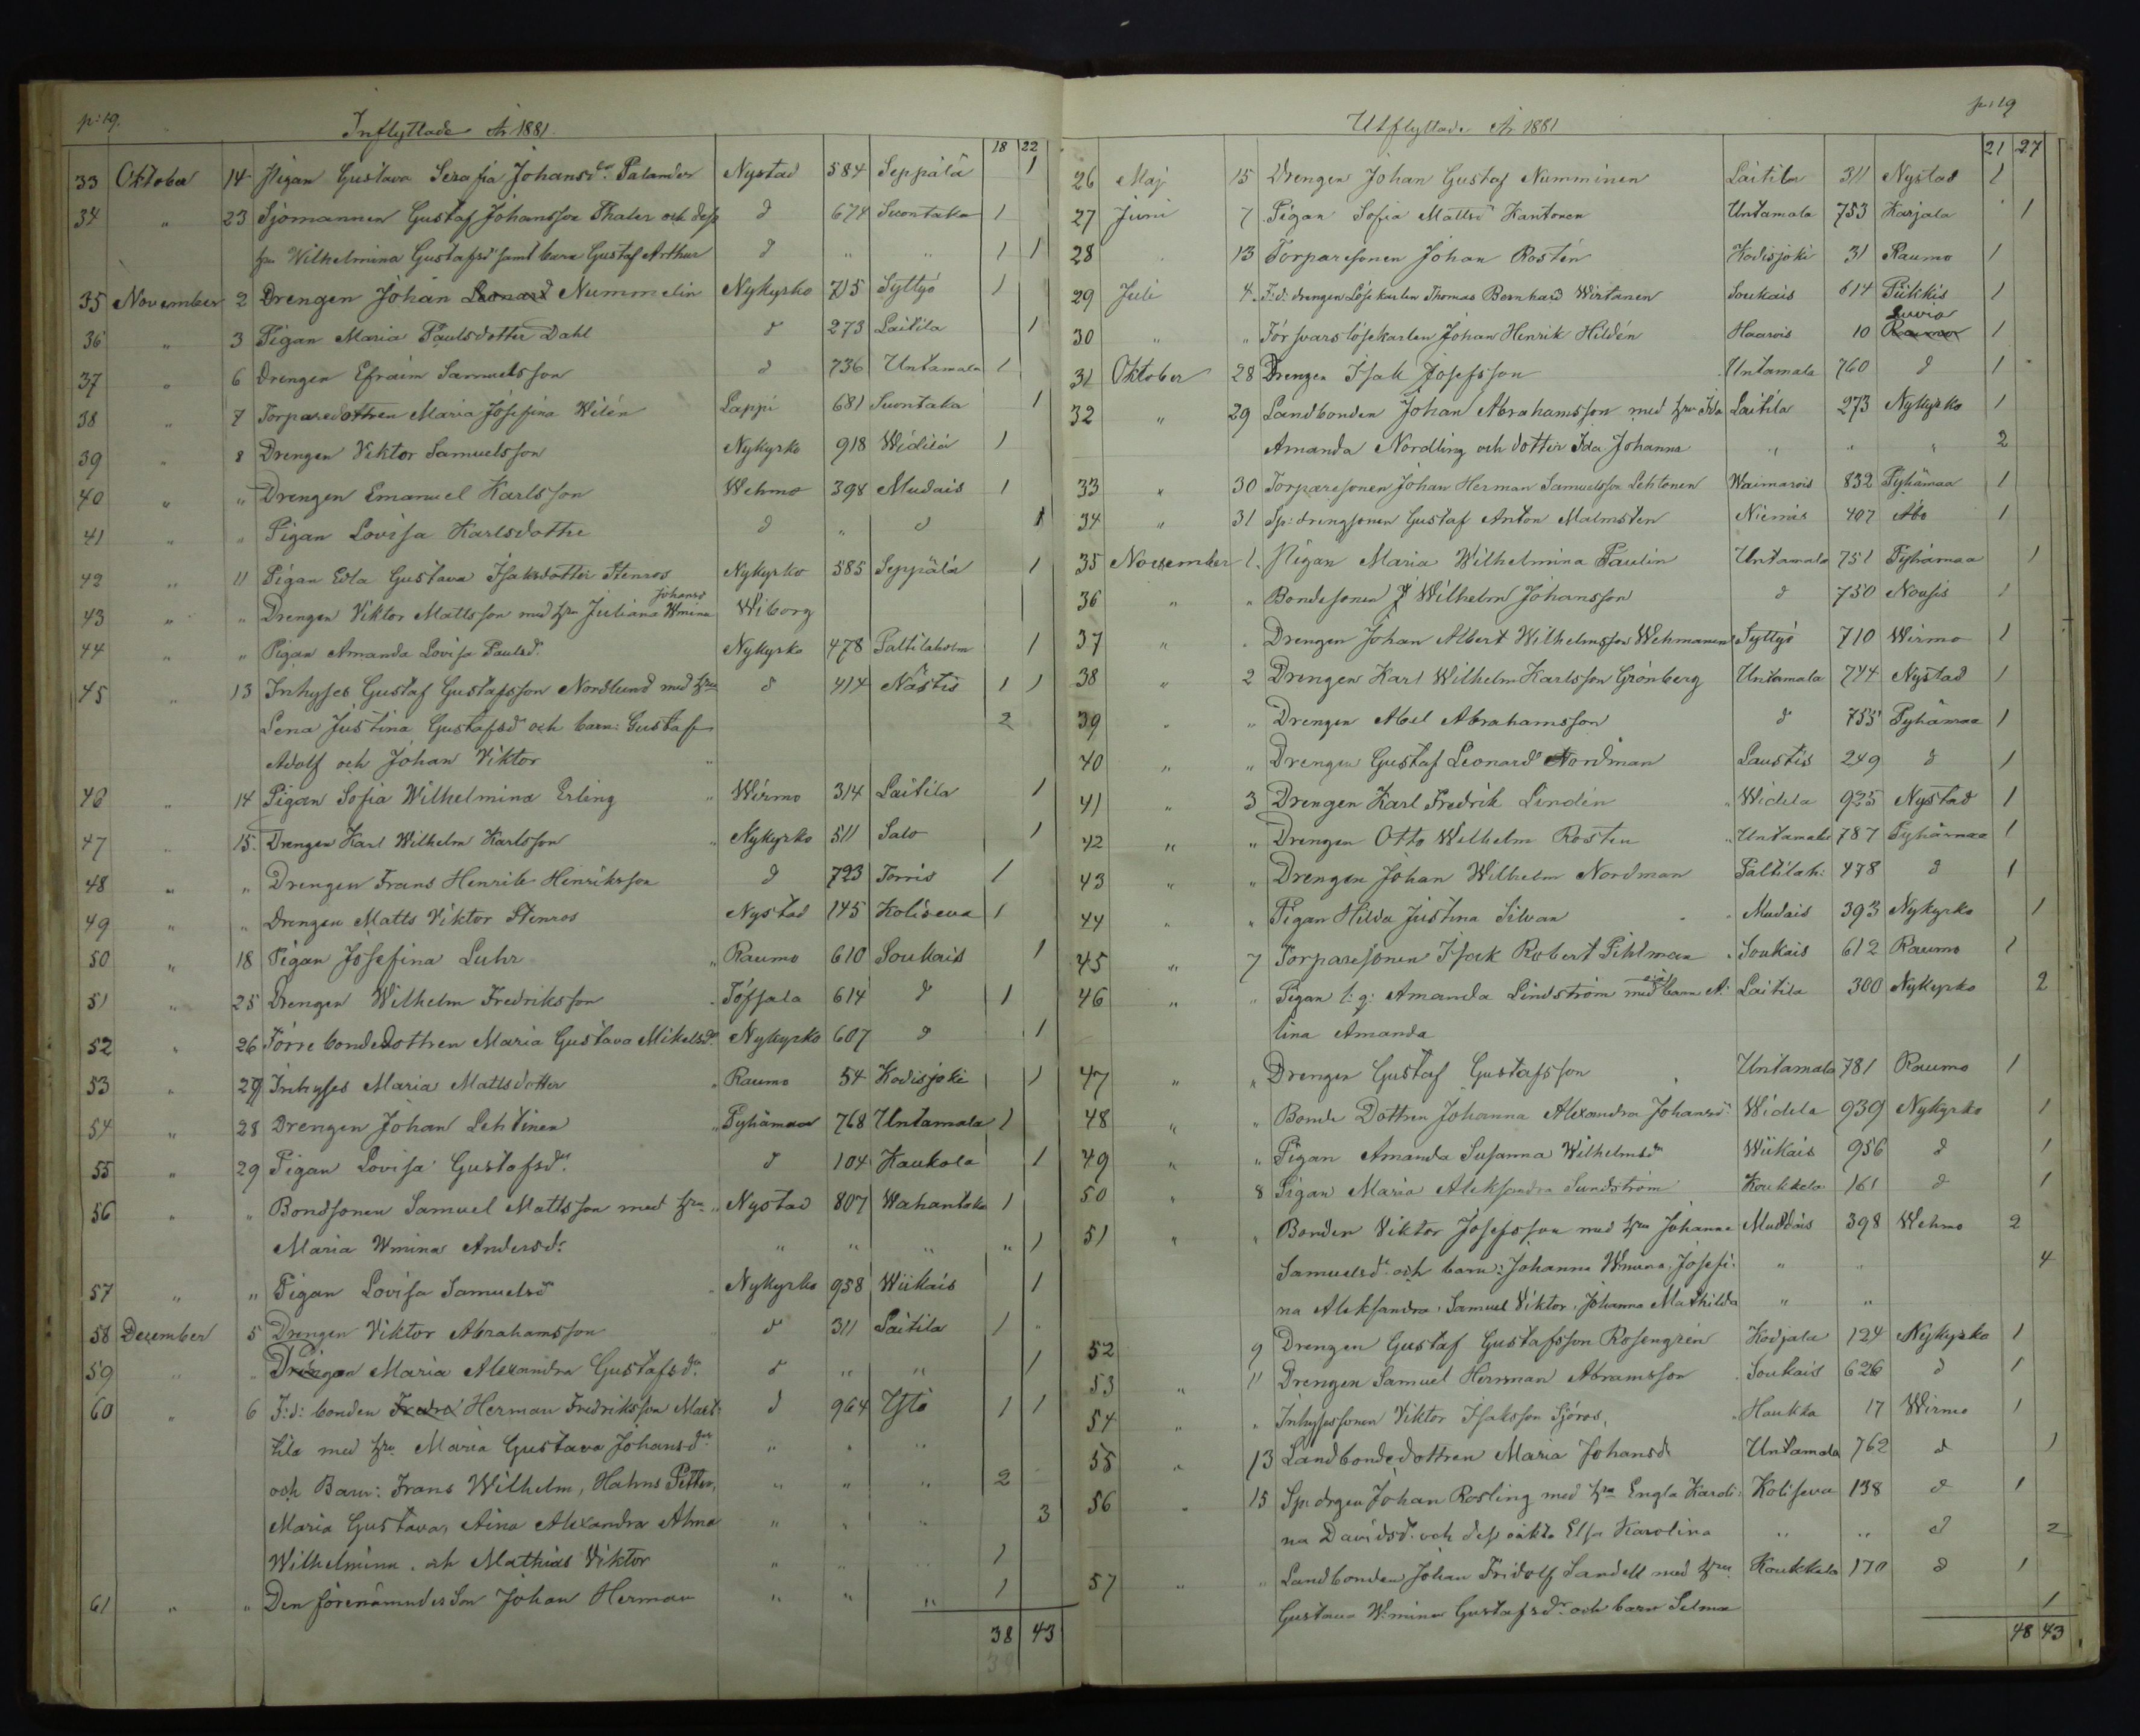 p: 19.
Inflyttade År 1881.
18 22
33 Oktober 14 Pigan Gustava Serafia Johansdr Palander Nystad 584 Seppälä 1
34 " 23 Sjömannen Gustaf Johansson Thaler och dess d 674 Suontaka 1
hru Wilhelmina Gustafsdr samt barn Gustaf Arthur d " " 1 1
35 November 2 Drengen Johan Leonard Nummelin Nykyrko 715 Syttyö 1
36 " 3 Pigan Maria Paulsdotter Dahl d 273 Laitila 1
37 " 6 Drengen Efraim Samuelsson d 736 Untamala 1
38 " 7 Torparedottren Maria Josefina Wilén Lappi 681 Suontaka 1
39 " 8 Drengen Viktor Samuelsson Nykyrko 918 Widilä 1
40 " " Drengen Emanuel Karlsson Wehmo 398 Mudais 1
41 " " Pigan Lovisa Karlsdotter d " d 1
42 " 11 Pigan Edla Gustava Isaksdotter Stenros Nykyrko 585 Seppälä 1
43 " " Drengen Viktor Mattsson med hru Juliana Wmina Johansd Wiborg
44 " " Pigan Amanda Lovisa Paulsd. Nykyrko 478 Paltilaholm 1
45 " 13 Inhyses Gustaf Gustafsson Nordlund med hru d 414 Nästis 1 1
Lena Justina Gustafsdr och barn: Gustaf 2
Adolf och Johan Viktor "
46 " 14 Pigan Sofia Wilhelmina Erling " Wirmo 314 Laitila 1
47 " 15. Drengen Karl Wilhelm Karlsson " Nykyrko 511 Salo 1
48 " " Drengen Frans Henrik Henriksson d 723 Torris 1
49 " " Drengen Matts Viktor Stenros Nystad 145 Koliseva 1
50 " 18 Pigan Josefina Luhr " Raumo 610 Soukais 1
51 " 25 Drengen Wilhelm Fredriksson Töfsala 614 d 1
52 " 26 Förre bondedottren Maria Gustava Mikelsdr Nykyrko 607 d 1
53 " 27 Inhyses Maria Mattsdotter " Raumo 54 Kodisjoki 1
54 " 28 Drengen Johan Lehtinen " Pyhämaa 768 Untamala 1
55 " 29 Pigan Lovisa Gustafsdr d 104 Kaukola 1
56 " " Bondsonen Samuel Mattsson med hru " Nystad 807 Wahantaka 1
Maria Wmina Andersdr " " " " 1
57 " " Pigan Lovisa Samuelsdr Nykyrko 958 Wiikais 1
58 December 5 Drengen Viktor Abrahamsson d 311 Laitila 1
59 " " Pigan Maria Alexandra Gustafsdr d " " 1
60 " 6 F:d: bonden Fredri Herman Fredriksson Mart- d 964 Ylö 1 1
tila med hru Maria Gustava Johansdr " " "
och Barn: Frans Wilhelm, Hahns Petter, " " " 2
Maria Gustava, Aina Alexandra Alma " " " 3
Wilhelmina och Mathias Viktor " " " 1
61 " " Den förenämndes Son Johan Herman " " " 1
38 43
39
p: 19
Utflyttade År 1881
21 27
26 Maj 15 Drengen Johan Gustaf Numminen Laitila 311 Nystad 1
27 Juni 7 Pigan Sofia Mattsdr Kantonen Untamala 753 Karjala 1
28 " 13 Torparesonen Johan Rostén Kodisjoki 31 Raumo 1
29 Juli 4. F:d: drengen Lösekarlen Thomas Bernhard Wirtanen Soukais 614 Piikkis 1
30 " " Försvarslösekarlen Johan Henrik Hildén Haarois 10 Raumo Luvia 1
31 Oktober 28 Drengen Isak Josefsson Untamala 760 d 1
32 " 29 Landbonden Johan Abrahamsson med hru Ida Laitila 273 Nykyrko 1
Amanda Nordling och dotter Ida Johanna " " " 2
33 " 30 Torparesonen Johan Herman Samuelsson Lehtonen Waimarois 832 Pyhämaa 1
34 " 31 Sp: drengsonen Gustaf Anton Malmsten Niemis 407 Åbo 1
35 November 1. Pigan Maria Wilhelmina Paulin Untamala 751 Pyhämaa 1
36 " " Bondesonen J Wilhelm Johansson d 750 Nousis 1
37 " " Drengen Johan Albert Wilhelmsson Wehmanen Syttyö 710 Wirmo 1
38 " 2 Drengen Karl Wilhelm Karlsson Grönberg Untamala 744 Nystad 1
39 " " Drengen Abel Abrahamsson d 755 Pyhämaa 1
40 " " Drengen Gustaf Leonard Nordman Laustis 249 d 1
41 " 3 Drengen Karl Fredrik Lindén " Widila 925 Nystad 1
42 " " Drengen Otto Wilhelm Rosten " Untamala 787 Pyhämaa 1
43 " " Drengen Johan Wilhelm Nordman Paltilah: 478 d 1
44 " " Pigan Hilda Justina Silvan Mudais 393 Nykyrko 1
45 " 7 Torparesonen Isak Robert Pihlman Soukais 612 Raumo 1
46 " " Pigan l: g: Amanda Lindström med barn A: Laitila 300 Nykyrko 2
lina Amanda
47 " " Drengen Gustaf Gustafsson Untamala 781 Raumo 1
48 " " Bonde Dottren Johanna Alexandra Johansdr Widila 939 Nykyrko 1
49 " " Pigan Amanda Susanna Wilhelmsdr Wiikais 956 d 1
50 " 8 Pigan Maria Aleksandra Sundström Koukkela 161 d 1
51 " " Bonden Viktor Josefsson med hru Johanna Mudais 398 Wehmo 2
Samuelsdr och barn: Johanna Wmina, Josefi- " " 4
na Aleksandra, Samuel Viktor, Johanna Mathilda " "
52 9 Drengen Gustaf Gustafsson Rosengrén Kodjala 124 Nykyrko 1
53 " 11 Drengen Samuel Herman Abramsson Soukais 626 d 1
54 " " Inhysessonen Viktor Isaksson Sjöros, " Haukka 17 Wirmo 1
55 " 13 Landbondedottren Maria Johansdr Untamala 762 d 1
56 " 15 Sp: drgen Johan Rosling med hru Engla Karoli- Koliseva 138 d 1
na Davidsdr och dess oäkta Elsa Karolina " " d 2
57 " " Landbonden Johan Fridolf Sandell med hru Koukkela 170 d 1
Gustava Wmina Gustafsdr och barn Selma 1
48 43